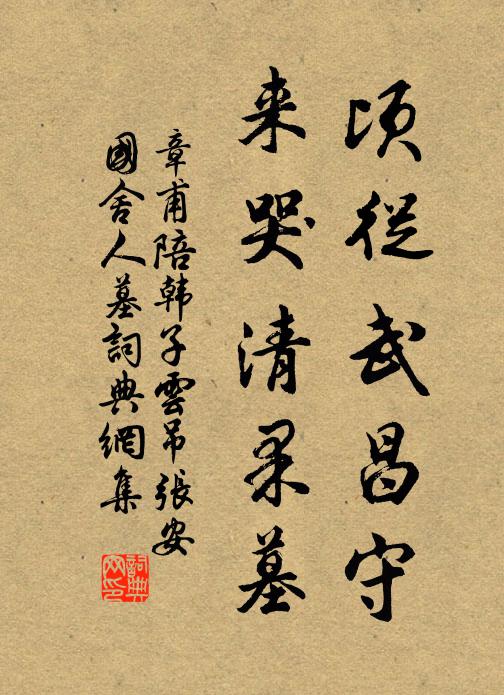 頃從武昌守
来哭清果墓
章甫陪韩子雲吊張安
國舍人墓詞典網集
詞典
网印